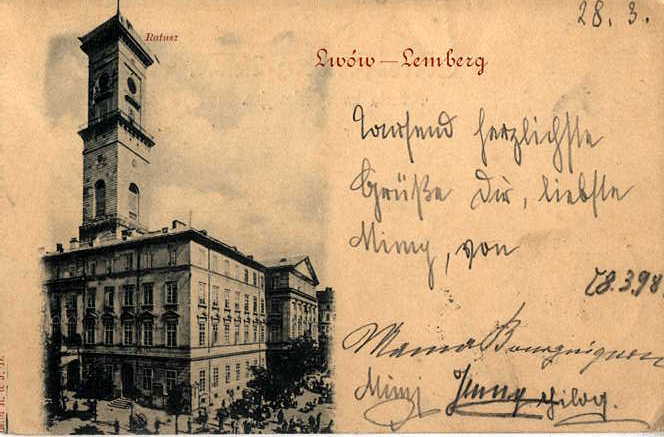 28. 3.
Ratusz
Lwów — Lemberg
Tausend herzlichste
Grüße Dir, liebste
Mimy, von
28.3.98
Mama Bourguignon
Mimi Jenny